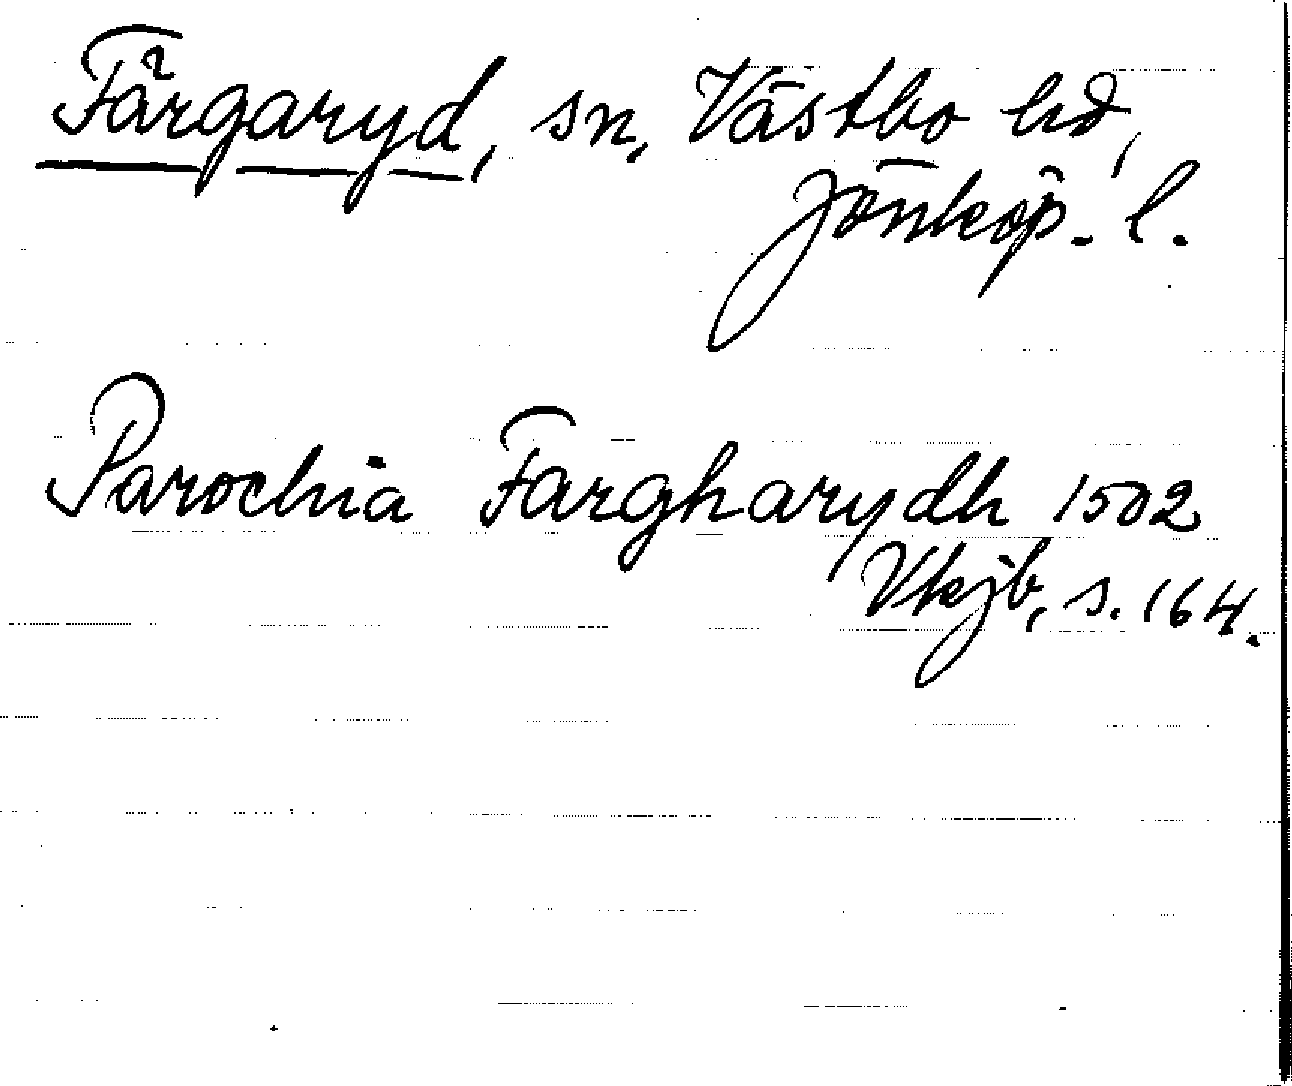 Färgaryd, sn, Västbo hd,
Jönköp. l.
Parochia Fargharydh 1502
Vkjb, s. 164.